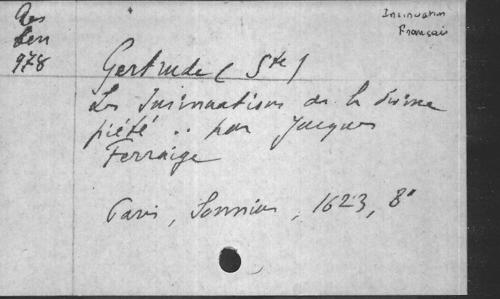 Res
Len
978
Insinuation
Français
Gertrude (Ste)
Les Insinuations de la divine
piété .. par Jacques
Ferraige
Paris, Sonnius, 1623, 8°